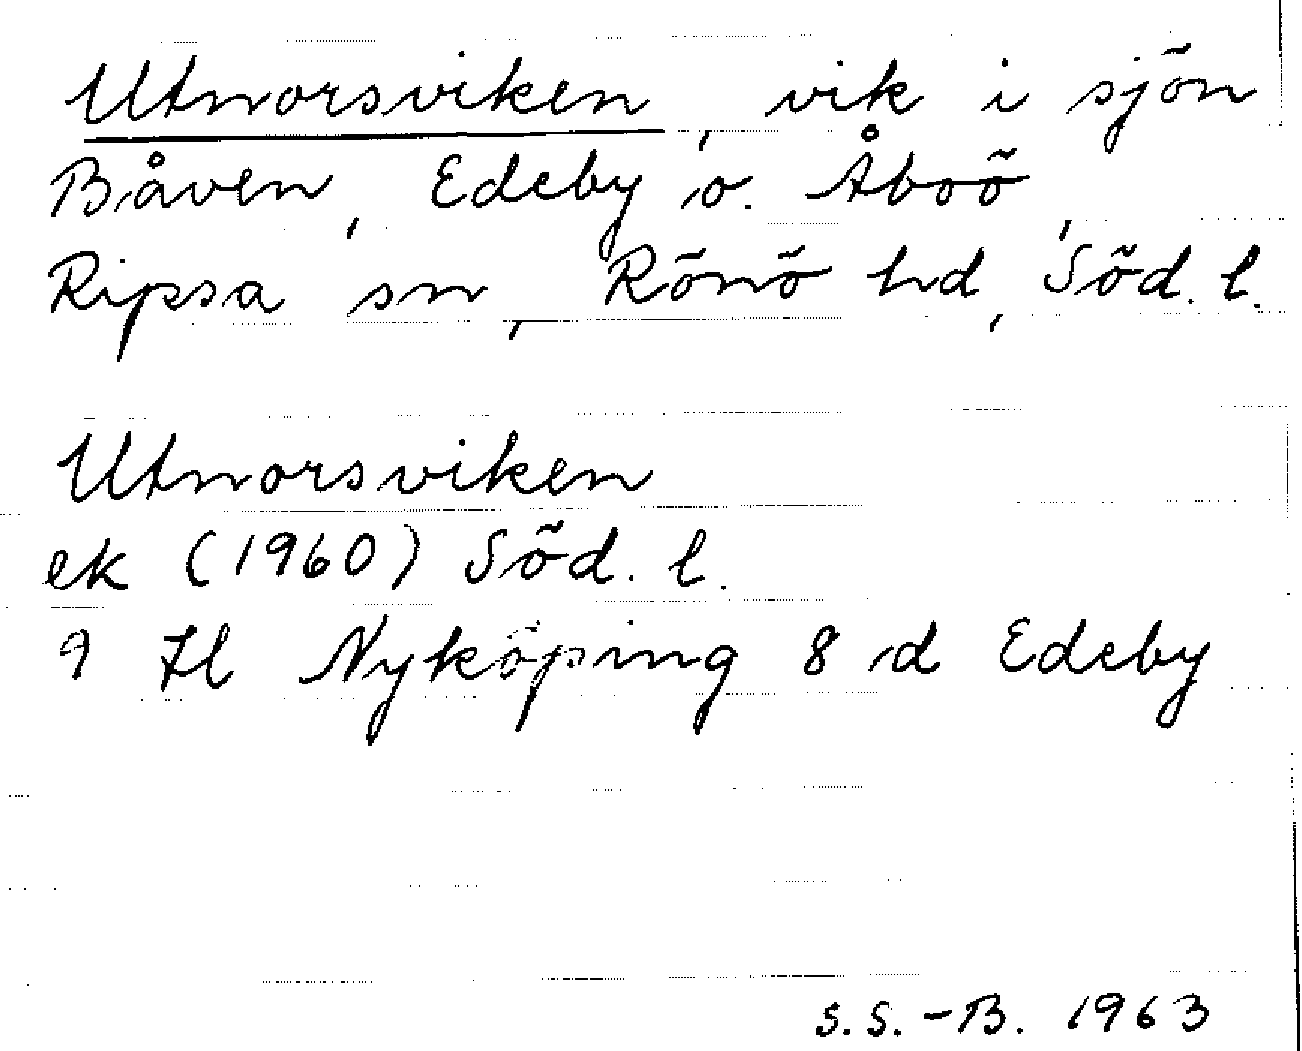 Utnorsviken, vik i sjön
Båven, Edeby o. Åboö,
Ripsa sn, Rönö hd, Söd. l.
Utnorsviken
ek (1960) Söd. l.
9 Il Nyköping 8 d Edeby
S. S.-B. 1963